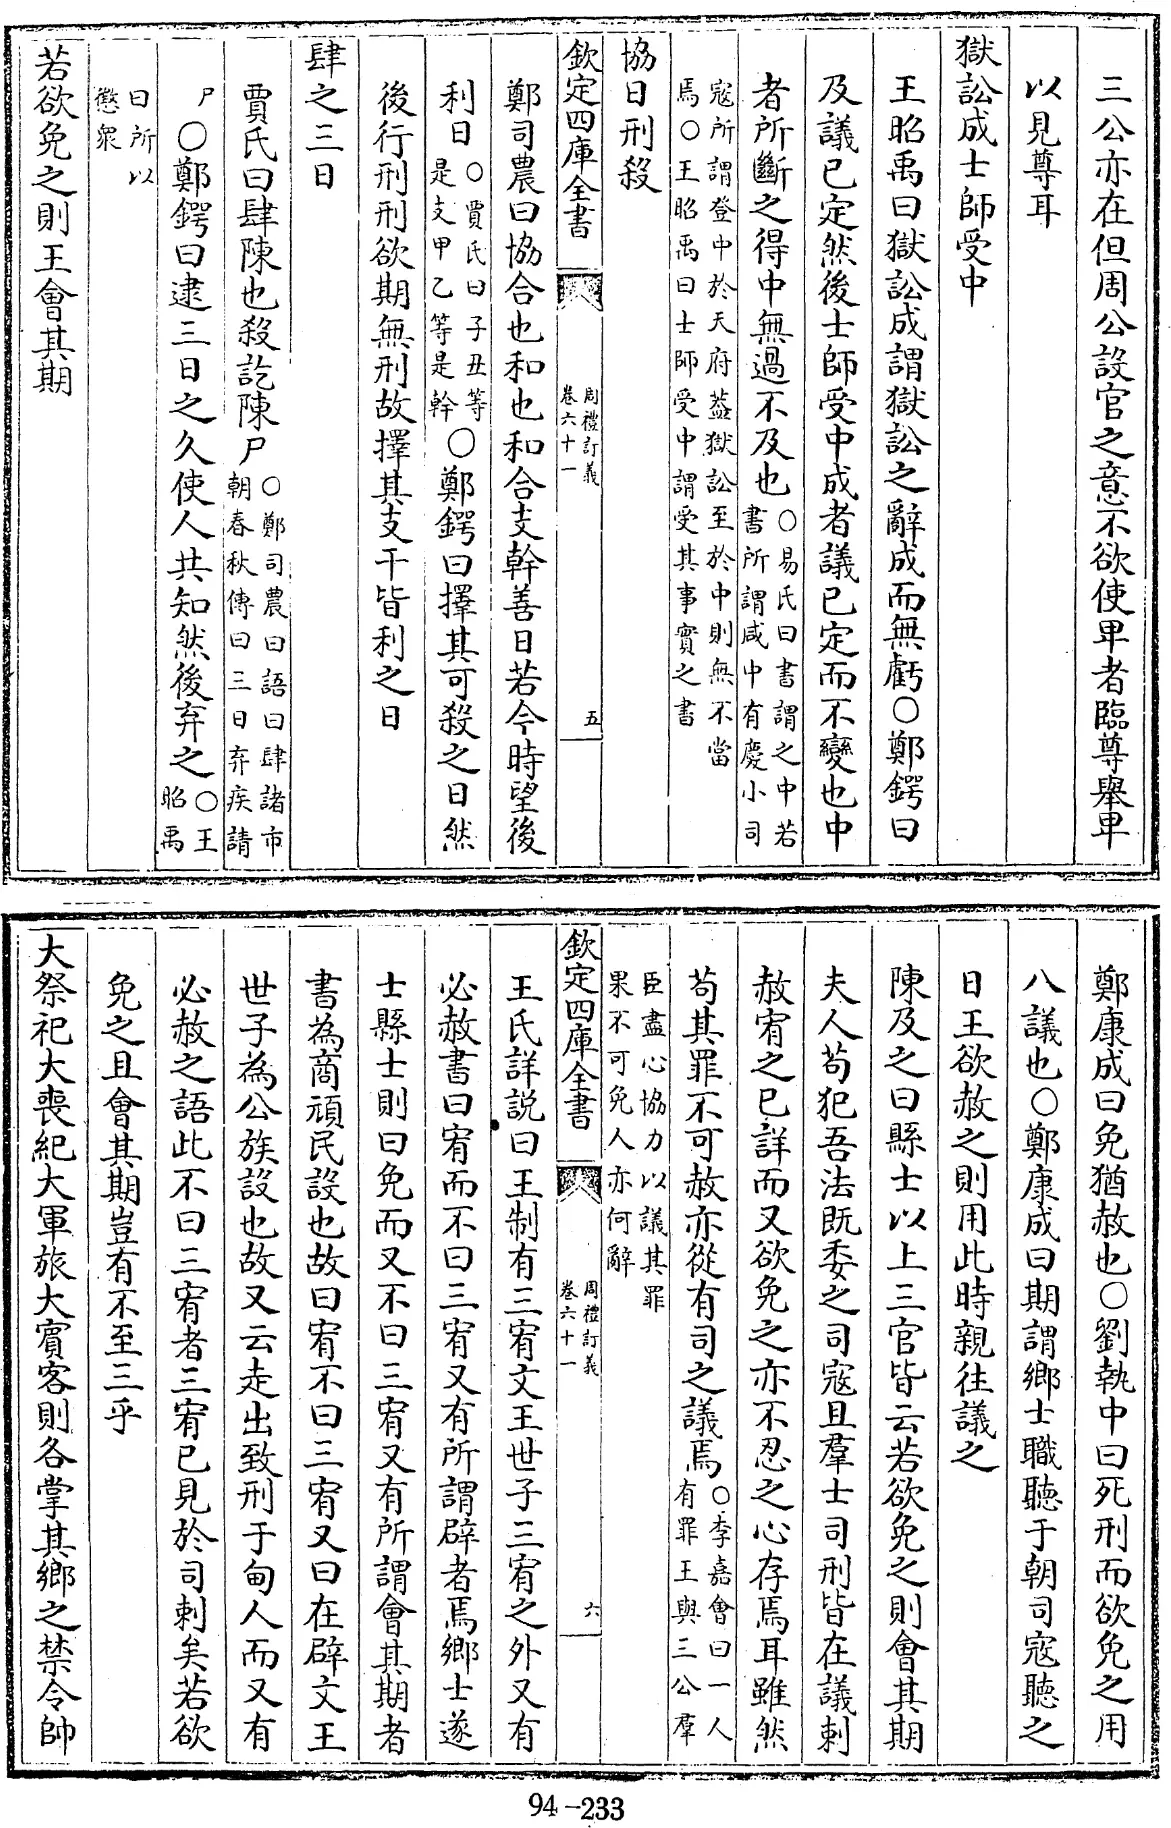 三公亦在但周公設官之意不欲使卑者臨尊舉卑
以見尊耳
獄訟成士師受中
王昭禹曰獄訟成謂獄訟之辭成而無虧○鄭鍔曰
及議已定然後士師受中成者議已定而不變也中
者所斷之得中無過不及也○易氏曰書謂之中若
書所謂咸中有慶小司
寇所謂登中於天府葢獄訟至於中則無不當
焉○王昭禹曰士師受中謂受其事實之書
協日刑殺
欽定四庫全書
周禮訂義
卷六十一
五
鄭司農曰協合也和也和合支幹善日若今時望後
利日○賈氏曰子丑等
是支甲乙等是幹○鄭鍔曰擇其可殺之日然
後行刑刑欲期無刑故擇其支干皆利之日
肆之三日
賈氏曰肆陳也殺訖陳尸○鄭司農曰語曰肆諸市
朝春秋傳曰三日弃疾請
尸○鄭鍔曰逮三日之久使人共知然後弃之○王
昭禹
曰所以
懲衆
若欲免之則王會其期
鄭康成曰免猶赦也○劉執中曰死刑而欲免之用
八議也○鄭康成曰期謂鄉士職聽于朝司寇聽之
日王欲赦之則用此時親往議之
陳及之曰縣士以上三官皆云若欲免之則會其期
夫人苟犯吾法既委之司寇且羣士司刑皆在議刺
赦宥之已詳而又欲免之亦不忍之心存焉耳雖然
苟其罪不可赦亦從有司之議焉○李嘉會曰一人
有罪王與三公羣
臣盡心協力以議其罪
果不可免人亦何辭
欽定四庫全書
周禮訂義
卷六十一
六
王氏詳説曰王制有三宥文王世子三宥之外又有
必赦書曰宥而不曰三宥又有所謂辟者焉鄉士遂
士縣士則曰免而又不曰三宥又有所謂會其期者
書為商頑民設也故曰宥不曰三宥又曰在辟文王
世子為公族設也故又云走出致刑于甸人而又有
必赦之語此不曰三宥者三宥已見於司刺矣若欲
免之且會其期豈有不至三乎
大祭祀大喪紀大軍旅大賓客則各掌其鄉之禁令帥
94-233